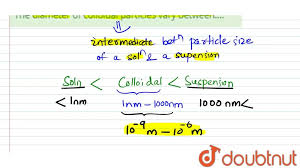 The diameter of colloidal particles vary between....
intermediate betn particle size
of a soln & a supension
Soln < Colloidal < Suspension
< 1nm 1nm - 1000nm 1000 nm <
10⁻⁹ m - 10⁻⁶ m
doubtnut